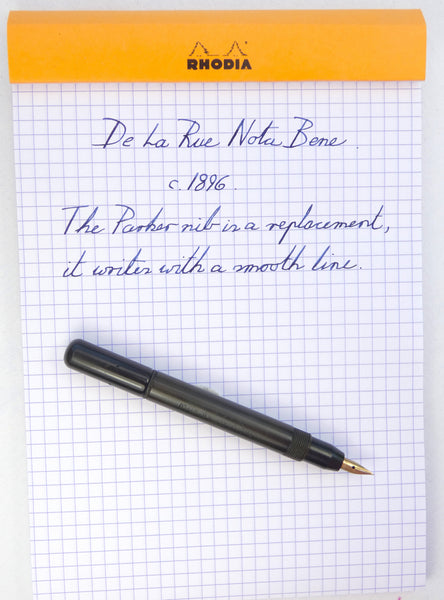 RHODIA
De La Rue Nota Bene.
c. 1896.
The Parker nib is a replacement,
it writes with a smooth line.